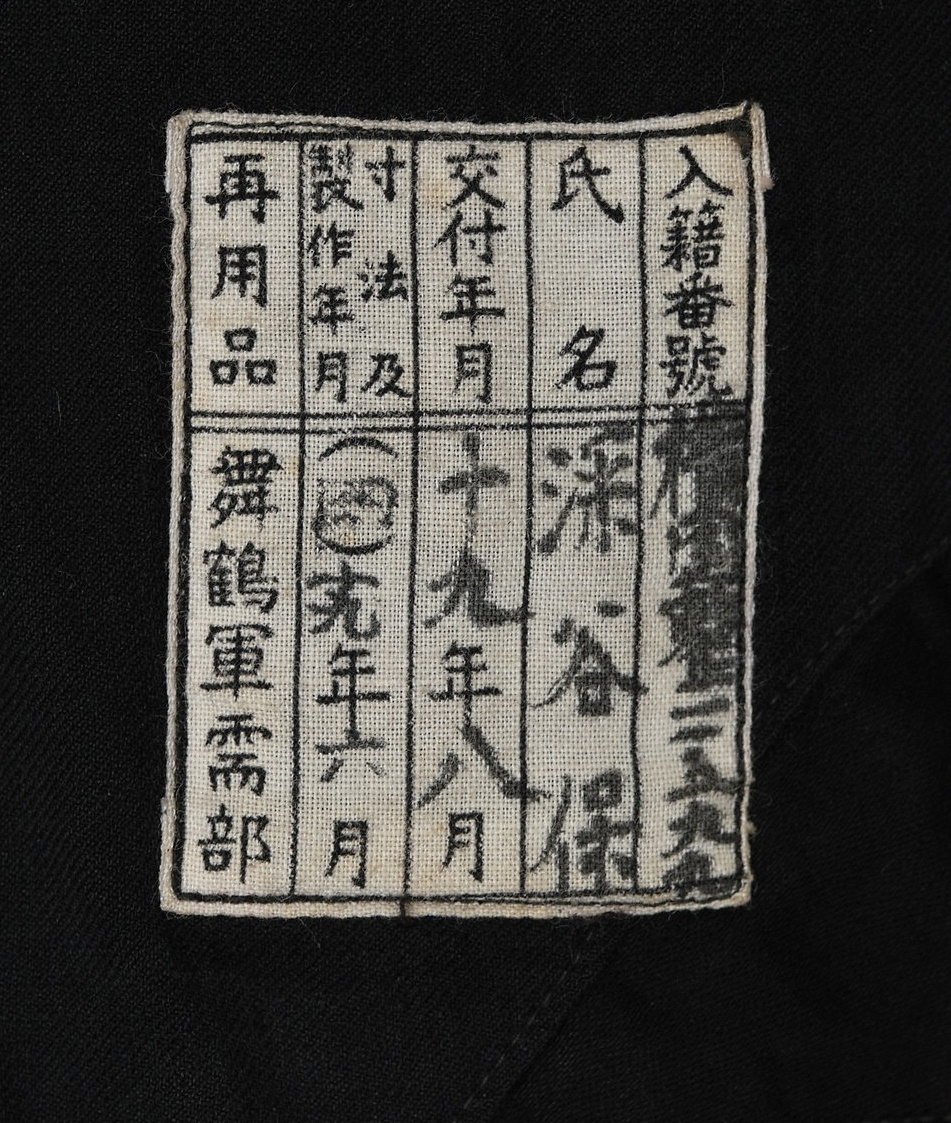 入籍番號
二五九九
氏名
深谷保
交付年月
十九年八月
寸法及
製作年月
十九年六月
再用品
舞鶴軍需部